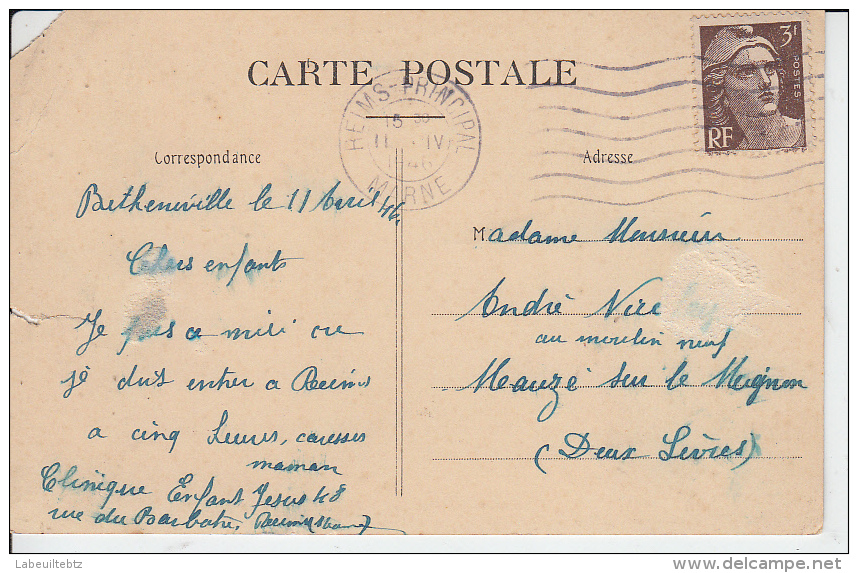 CARTE POSTALE
REIMS-PRINCIPAL
15 30
11 - IV
1946
MARNE
3F
POSTES
RF
Correspondance
Adresse
Betheniville le 11 Avril 46
Chers enfants
Je a midi
je dois entrer a Reims
a cinq heures, caresses
maman
Clinique Enfant Jesus 48
rue du Barbatre, Reims (Marne)
Madame Monsieur
André
au moulin neuf
Mauzé sur le Mignon
(Deux Sèvres)
Labeuiltebtz
delcampe.net